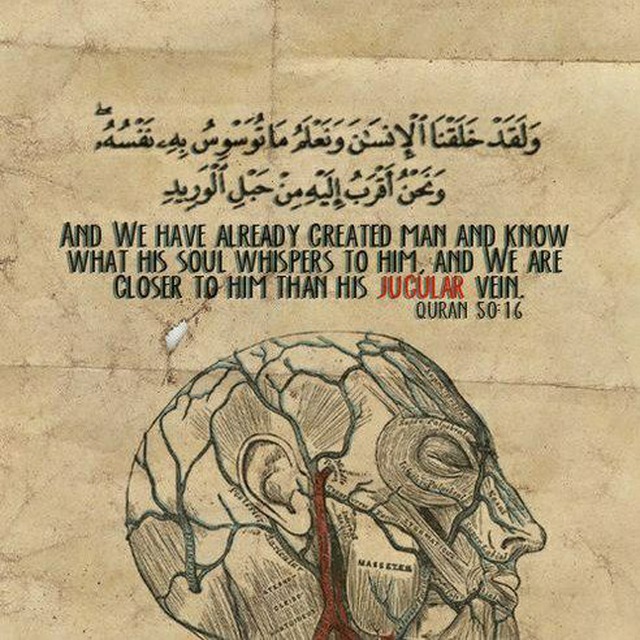 وَلَقَدْ خَلَقْنَا ٱلْإِنسَٰنَ وَنَعْلَمُ مَا تُوَسْوِسُ بِهِۦ نَفْسُهُۥ ۖ
وَنَحْنُ أَقْرَبُ إِلَيْهِ مِنْ حَبْلِ ٱلْوَرِيدِ
AND WE HAVE ALREADY CREATED MAN AND KNOW
WHAT HIS SOUL WHISPERS TO HIM, AND WE ARE
CLOSER TO HIM THAN HIS JUGULAR VEIN.
QURAN 50:16
MASSETER